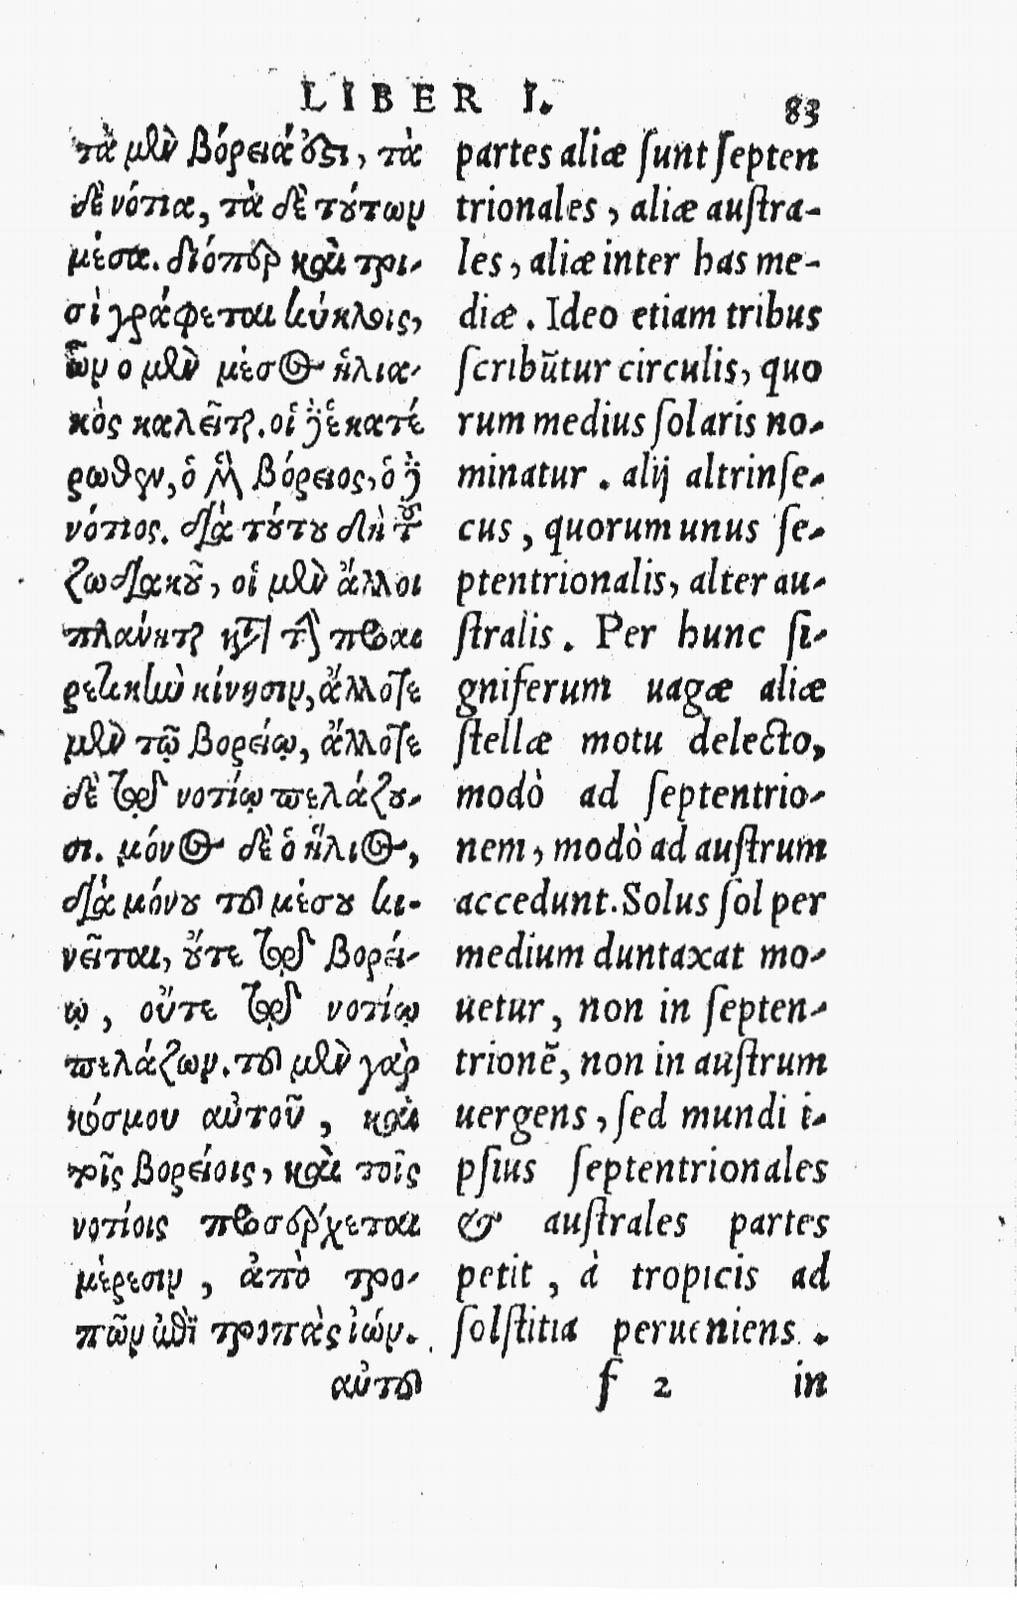 LIBER I.
83
τὰ μὲν βόρειά ὅϛι, τὰ
δὲ νότια, τὰ δὲ τύτων
μέσα. διόπερ καὶ τρι-
σὶ γράφεται κύκλοις,
ὧν ο μὲν μέσος ἡλια-
κὸς καλεῖται. οἱ δὲ ἑκατέ
ρωθεν, ὁ μὲν βόρειος, ὁ δὲ
νότιος. διὰ τούτου δὴ τοῦ
ζωδιακοῦ, οἱ μὲν ἄλλοι
πλανῆται κατὰ τὴν προαι
ρετικὴν κίνησιν, ἄλλοτε
μὲν τῷ βορείῳ, ἄλλοτε
δὲ τῷ νοτίῳ πελάζου-
σι. μόνος δὲ ὁ ἥλιος,
διὰ μόνου τοῦ μέσου κι-
νεῖται, οὔτε τῷ βορεί-
ῳ, οὔτε τῷ νοτίῳ
πελάζων. τοῦ μὲν γὰρ
κόσμου αὐτοῦ, καὶ
τοῖς βορείοις, καὶ τοῖς
νοτίοις προσέρχεται
μέρεσιν, ἀπὸ τρο-
πῶν ἐπὶ τροπὰς ἰών.
αὐτοῦ
partes aliæ ſunt ſepten
trionales, aliæ auſtra-
les, aliæ inter has me-
diæ. Ideo etiam tribus
ſcribũtur circulis, quo
rum medius ſolaris no-
minatur. alij altrinſe-
cus, quorum unus ſe-
ptentrionalis, alter au-
ſtralis. Per hunc ſi-
gniferum uagæ aliæ
ſtellæ motu delecto,
modò ad ſeptentrio-
nem, modò ad auſtrum
accedunt. Solus ſol per
medium duntaxat mo-
uetur, non in ſepten-
trionẽ, non in auſtrum
uergens, ſed mundi i-
pſius ſeptentrionales
& auſtrales partes
petit, à tropicis ad
ſolſtitia perueniens.
f 2
in